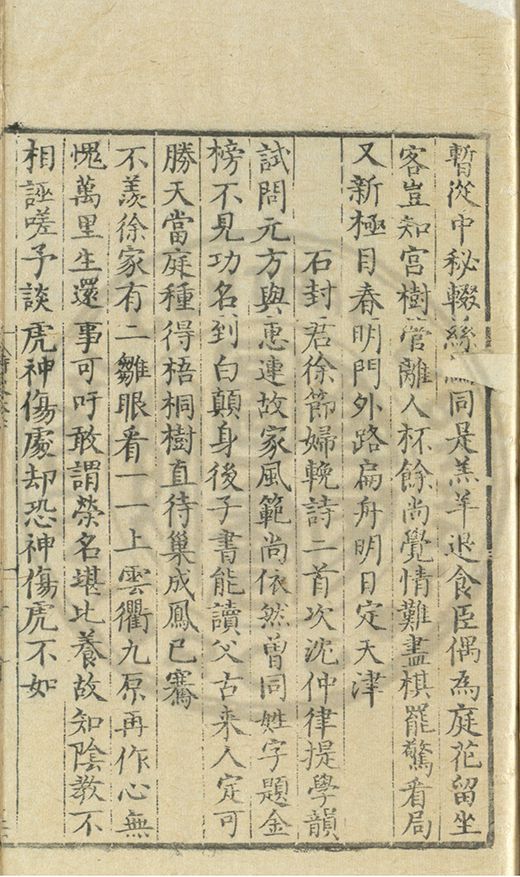 暫從中秘輟絲綸同是羔羊退食臣偶為庭花留坐
客豈知宮樹管離人杯餘尚覺情難盡棋罷驚看局
又新極目春明門外路扁舟明日定天津
石封君徐節婦輓詩二首次沈仲律提學韻
試問元方與惠連故家風範尚依然曾同姓字題金
榜不見功名到白顛身後子書能讀父古来人定可
勝天當庭種得梧桐樹直待巢成鳳已騫
不羨徐家有二雛眼看一一上雲衢九原再作心無
愧萬里生還事可吁敢謂榮名堪比養故知陰教不
相誣嗟予談虎神傷處却恐神傷虎不如